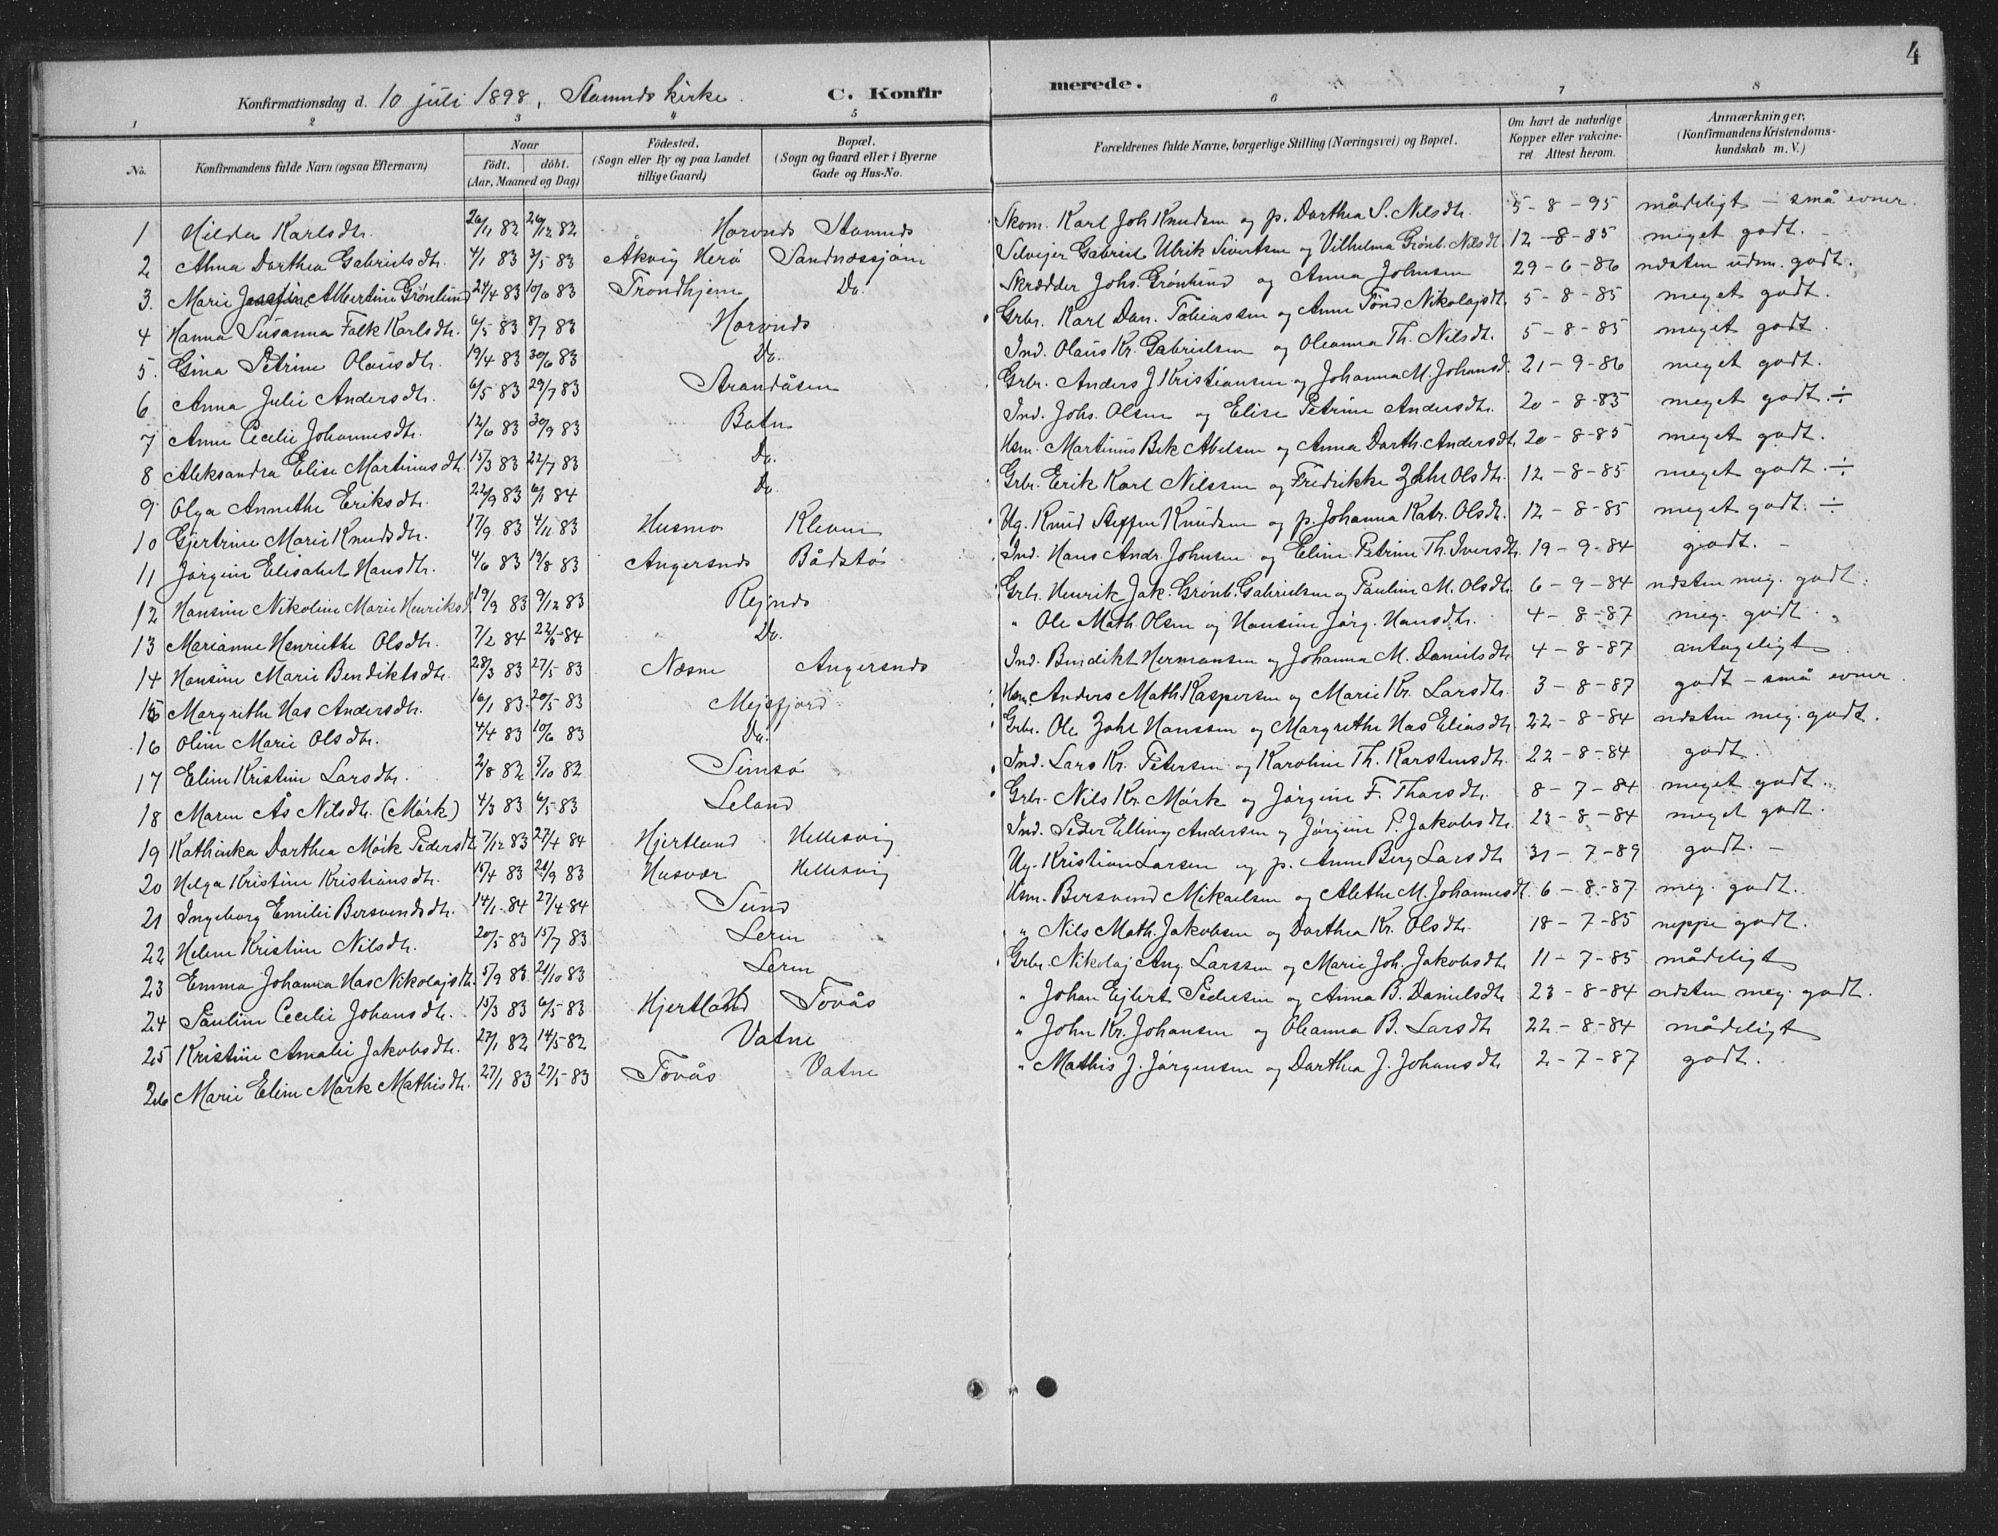 4
Konfirmationsdag d. 10 juli 1898, Stamnds kirke. C. Konfirmerede.
1 2 3 4 5 6 7 8
No. Konfirmandens fulde Navn (ogsaa Efternavn) Naar født. døbt. (Aar, Maaned og Dag) Fødested. (Sogn eller By og paa Landet tillige Gaard) Bopæl. (Sogn og Gaard eller i Byerne Gade og Hus-No. Forældrenes fulde Navne, borgerlige Stilling (Næringsvei) og Bopæl. Om havt de naturlige Kopper eller vakcineret. Attest herom. Anmærkninger, (Konfirmandens Kristendomskundskab m. V.)
1 Hilda Karlsdtr. 26/11 82 26/12 82 Horvnds Stamnds Skom. Karl Joh Knudsen og p. Dorthea S. Nilsdtr. 5-8-95 mådeligt - små evner.
2 Alma Dorthea Gabrielsdtr. 4/1 83 3/5 83 Åkvig Herø Sandnæssjøen Selvejer Gabriel Ulrik Sivertsen og Vilhelma Grønb. Nilsdt. 12-8-85 meget godt. -
3. Marie Josefine Albertine Grønlund 24/4 83 10/6 83 Trondhjem Do. Skrædder Johs. Grønlund og Anna Johnsen 29-6-86 ndsten udm. godt.
4 Hanna Susanna Falk Karlsdtr. 6/5 83 8/7 83 Horvnds Grbr. Karl Dan. Tobiassen og Anne Tønd. Nikolajsdt. 5-8-85 meget godt.
5. Gina Petrine Olausdtr. 19/4 83 30/6 83 Do. Ind. Olaus Kr. Gabrielsen og Oleanna Th. Nilsdt. 5-8-85 meget godt.
6 Anna Julie Andersdtr. 6/5 83 29/7 83 Strandåsen Grbr. Anders J Kristiansen og Johanna M. Johansd. 21-9-86 meget godt.
7 Anne Cecilie Johannesdtr. 12/6 83 30/9 83 Botn Ind. Johs. Olsen og Elise Petrine Andersdtr. 20-8-85 meget godt. ÷
8 Aleksandra Elise Martinusdtr. 15/3 83 22/7 83 Do. Hsm. Martinus Bek Abelsen og Anna Dorth. Andersdt. 20-8-85 meget godt.
9 Olga Annethe Eriksdtr. 22/9 83 6/1 84 Do. Grbr. Erik Karl Nilssen og Fredrikke Zahl Olsdtr. 12-8-85 meget godt. ÷
10 Gjertrine Marie Knudsdtr. 17/9 83 4/11 83 Husmo Kleven Ug. Knud Steffen Knudsen og p. Johanna Katr. Olsdt. 12-8-85 meget godt. ÷
11 Jørgine Elisabet Hansdtr. 4/6 83 19/8 83 Angersnds Bådstø Ind. Hans Andr. Johnsen og Eline Petrine Th. Iversdt. 19-9-84 godt. -
12 Hansine Nikoline Marie Henriksd. 19/9 83 9/12 83 Rejnds Grbr. Henrik Jak. Grønb. Gabrielsen og Pauline M. Olsdt. 6-9-84 ndsten meg. godt.
13 Marianne Henriette Olsdtr. 7/2 84 22/5-84 Do. " Ole Math. Olsen og Hansine Jørg. Hansdtr. 4-8-87 meg. godt.
14 Hansine Marie Bendiktsdtr. 28/3 83 27/5-83 Næsne Angersnds Ind. Bendikt Hermansen og Johanna M. Danielsdtr. 4-8-87 antageligt
15 Margrethe Has Andersdtr. 16/1 83 20/5-83 Mejsfjord Hsm. Anders Math Kaspersen og Marie Kr. Larsdtr. 3-8-87 godt - små evner.
16 Oline Marie Olsdtr. 4/4 83 10/6 83 Do. Grbr. Ole Zahl Hanssen og Margrethe Has Eliasdtr. 22-8-84 ndsten meg. godt.
17 Eline Kristine Larsdtr. 2/8 82 5/10 82 Semsø Ind. Lars Kr. Petersen og Karoline Th. Karstensdtr. 22-8-84 godt.
18 Maren Ås Nilsdtr. (Mørk) 4/3 83 6/5-83 Leland Grbr. Nils Kr. Mørk og Jørgine F. Thorsdtr. 8-7-84 meget godt.
19 Kathinka Dorthea Mørk Pedersdt. 7/12 83 27/4 84 Hjertland Hellesvig Ind. Peder Elling Andersen og Jørgine P. Jakobsdt. 23-8-84 meget godt
20 Helga Kristine Kristiansdtr. 15/4 83 21/9 83 Husvær Hellesvig Ug. Kristian Larsen og p. Anne Berg Larsdtr 31-7-89 godt. -
21 Ingeborg Emilie Bersvendsdtr. 14/1-84 27/4 84 Sund Hsm. Bersvend Mikaelsen og Alethe M. Johannesdt. 6-8-87 meg. godt.
22 Helene Kristine Nilsdtr. 20/5 83 15/7 83 Lerin " Nils Math. Jakobsen og Dorthea Kr. Olsdtr. 18-7-85 neppe godt.
23 Emma Johanna Has Nikolajsdt. 5/9 83 21/10 83 Lerin Grbr. Nikolaj Aug. Larssen og Marie Joh. Jakobsdtr 11-7-85 mådeligt
24 Pauline Cecilie Johansdtr. 15/3 83 6/5-83 Hjertland Tovås " Johan Ejlert Pedersen og Anna B. Danielsdtr 23-8-84 ndsten meg. godt.
25 Kristine Amalie Jakobsdtr. 27/1 82 14/5-82 Vatne " John Kr. Johansen og Oleanna B. Larsdtr 22-8-84 mådeligt
26 Marie Eline Mørk Mathisdtr. 27/1 83 27/5-83 Tovås Vatne " Mathis J. Jørgensen og Dorthea J. Johansdtr 2-7-87 godt.